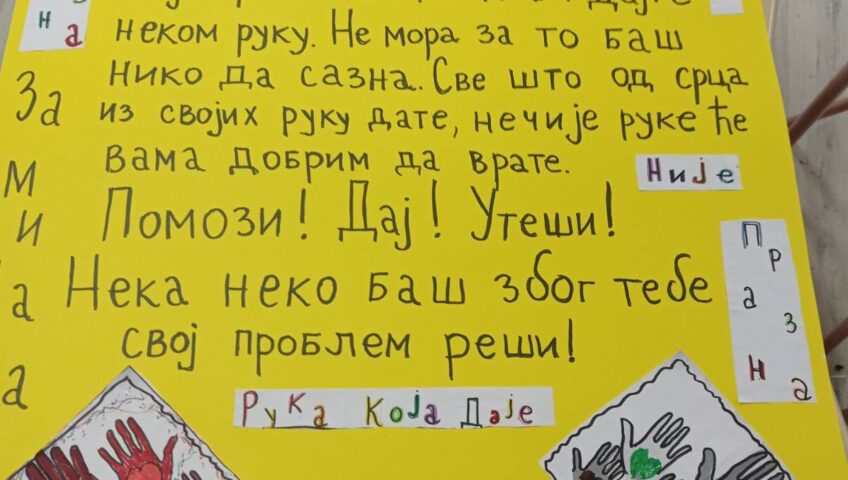 на
неком руку. Не мора за то баш
нико да сазна. Све што од срца
из својих руку дате, нечије руке ће
вама добрим да врате.
Помози! Дај! Утеши!
Нека неко баш због тебе
свој проблем реши!
За
м
и
а
а
Није
Празна
Рука Која Даје